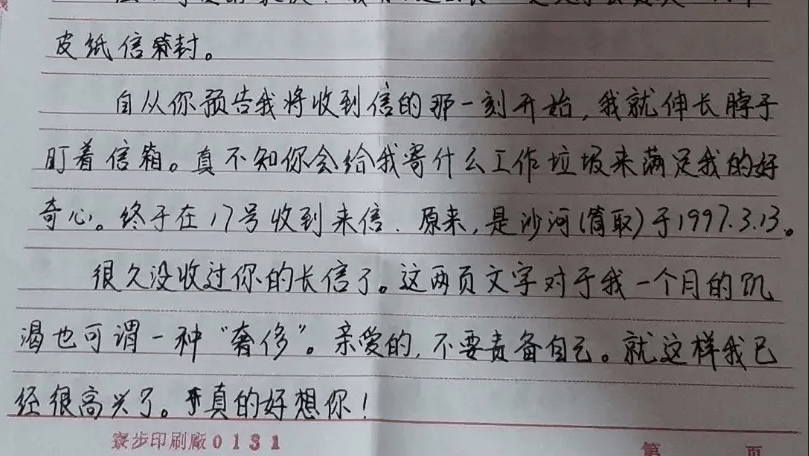 皮纸信封。
自从你预告我将收到信的那一刻开始，我就伸长脖子
盯着信箱。真不知你会给我寄什么工作垃圾来满足我的好
奇心。终于在17号收到来信．原来，是沙河(筒取)于1997.3.13。
很久没收过你的长信了。这两页文字对于我一个月的饥
渴也可谓一种“奢侈”。亲爱的，不要责备自己。就这样我已
经很高兴了。真的好想你！
寮步印刷廠0131
第 页